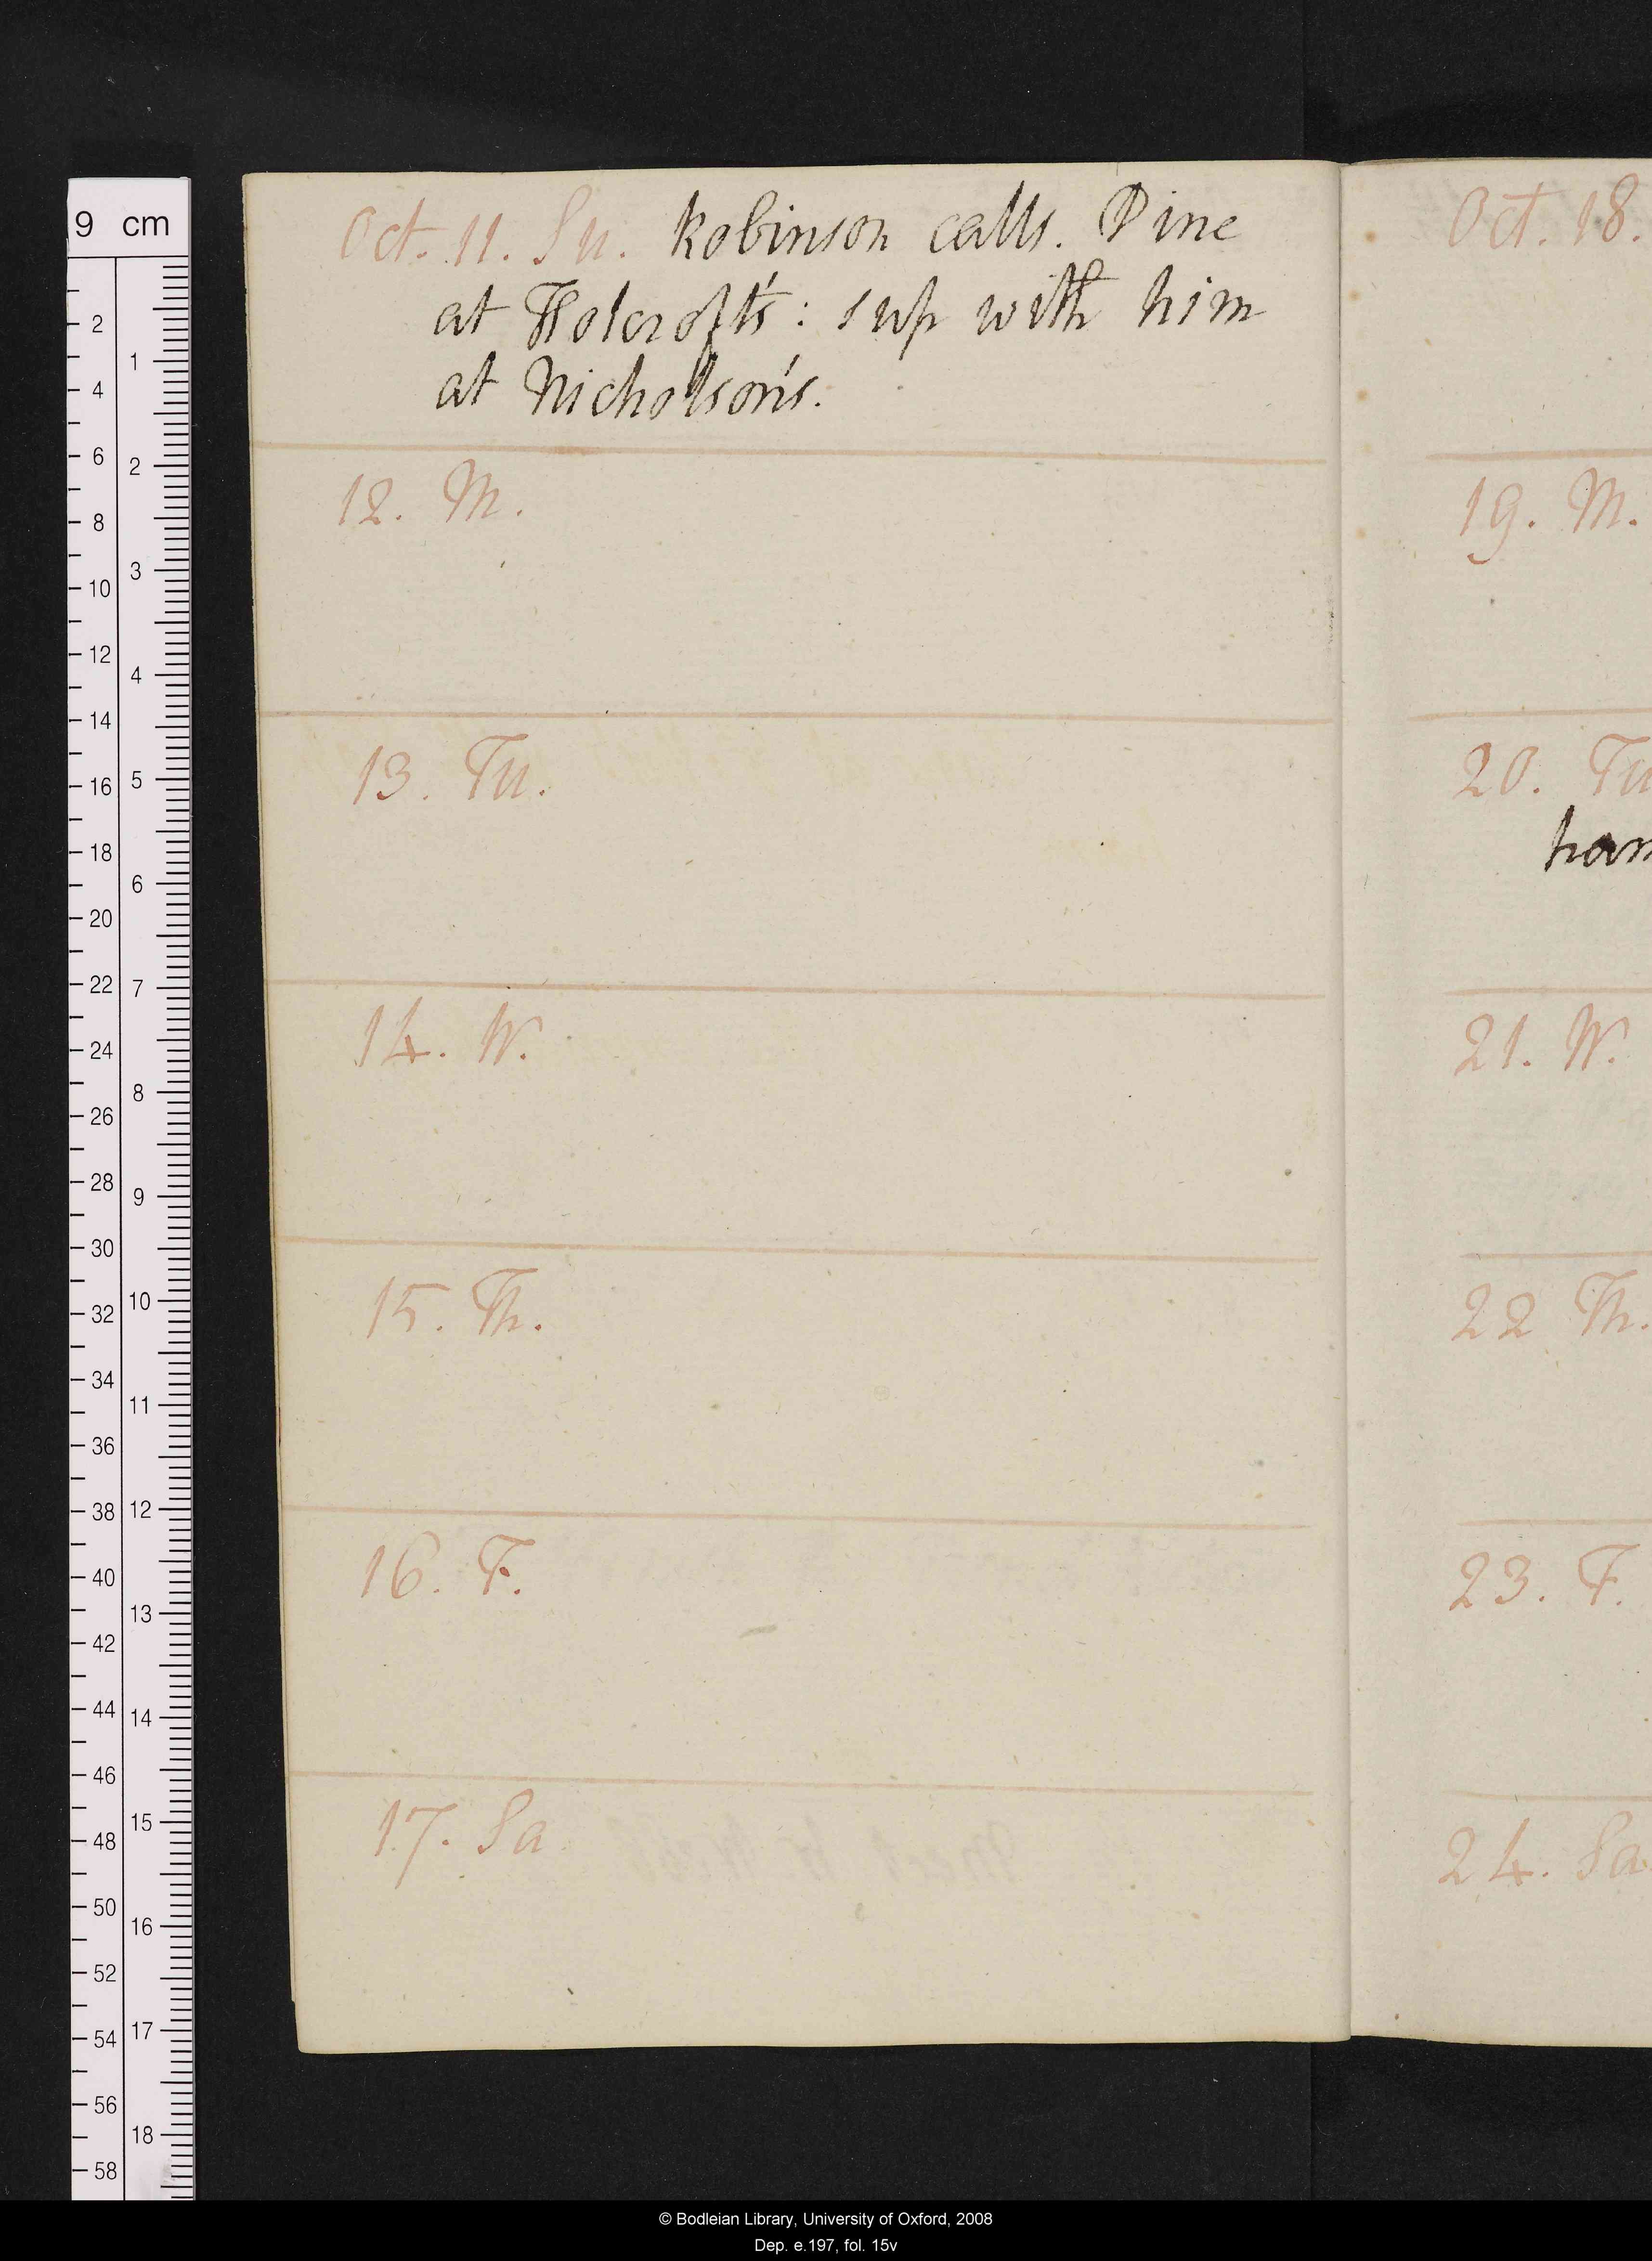 Oct. 11. Su. Robinson calls. Dine
at Holcroft's: sup with him
at Nicholson's.
12. M.
13. Tu.
14. W.
15. Th.
16. F.
17. Sa
Oct. 18.
19. M.
20. Tu
ham
21. W.
22 Th.
23. F.
24. Sa
9 cm
2
4
6
8
10
12
14
16
18
20
22
24
26
28
30
32
34
36
38
40
42
44
46
48
50
52
54
56
58
1
2
3
4
5
6
7
8
9
10
11
12
13
14
15
16
17
18
© Bodleian Library, University of Oxford, 2008
Dep. e.197, fol. 15v